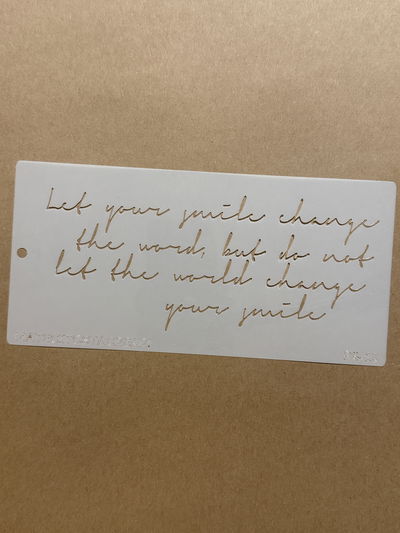 Let your smile change
the word, but do not
let the world change
your smile